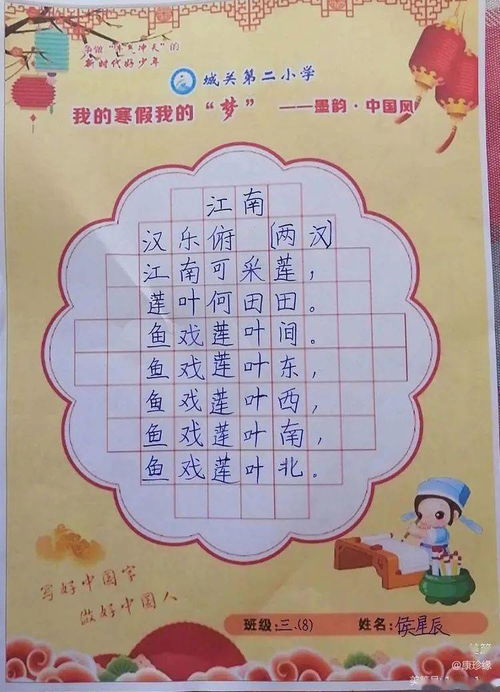 争做“牛气冲天”的
新时代好少年
城关第二小学
我的寒假我的“梦” ——墨韵·中国风
江南
汉乐俯 [两汉]
江南可采莲，
莲叶何田田。
鱼戏莲叶间。
鱼戏莲叶东，
鱼戏莲叶西，
鱼戏莲叶南，
鱼戏莲叶北。
写好中国字
做好中国人
班级：三.(8) 姓名：侯星辰
美篇
@康珍缘